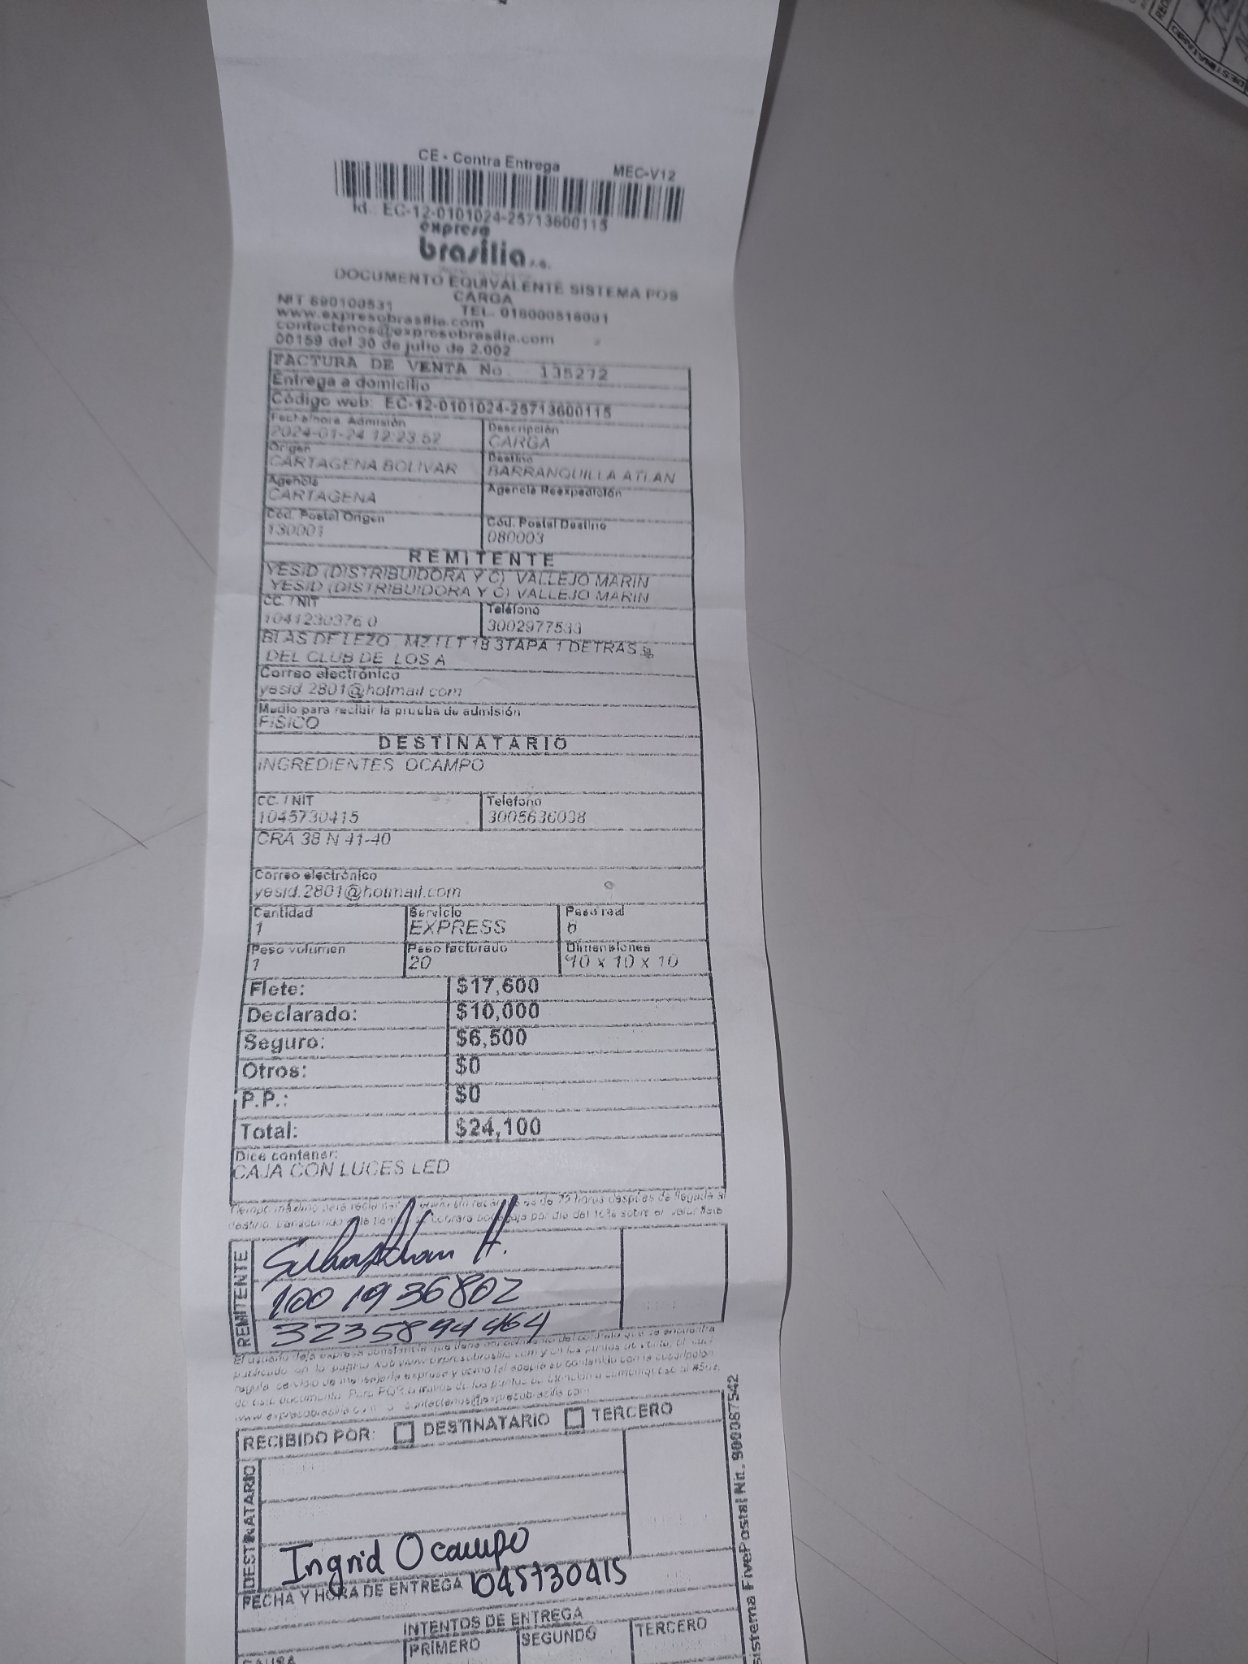 CE - Contra Entrega MEC-V12
Id.: EC-12-0101024-25713600115
expreso
brasilia s.a.
DOCUMENTO EQUIVALENTE SISTEMA POS
CARGA
NIT 890100531 TEL. 018000518001
www.expresobrasilia.com
contactenos@expresobrasilia.com
00159 del 30 de julio de 2.002
FACTURA DE VENTA No 135272
Entrega a domicilio
Código web: EC-12-0101024-25713600115
Fecha/hora Admisión Descripción
2024-01-24 12:23:52 CARGA
Origen Destino
CARTAGENA BOLIVAR BARRANQUILLA ATLAN
Agencia Agencia Reexpedición
CARTAGENA
Cód. Postal Origen Cód. Postal Destino
130001 080003
REMITENTE
YESID (DISTRIBUIDORA Y C) VALLEJO MARIN
YESID (DISTRIBUIDORA Y C) VALLEJO MARIN
CC. / NIT Teléfono
1041230376 0 3002977533
BLAS DE LEZO MZ 1 LT 1B 3TAPA 1 DETRAS
DEL CLUB DE LOS A
Correo electrónico
yesid.2801@hotmail.com
Medio para recibir la prueba de admisión
FISICO
DESTINATARIO
INGREDIENTES OCAMPO
CC. / NIT Telefono
1045730415 3005636038
CRA 38 N 41-40
Correo electrónico
yesid.2801@hotmail.com
Cantidad Servicio Peso real
1 EXPRESS 6
Peso volumen Peso facturado Dimensiones
1 20 10 x 10 x 10
Flete: $17,600
Declarado: $10,000
Seguro: $6,500
Otros: $0
P.P.: $0
Total: $24,100
Dice contener:
CAJA CON LUCES LED
REMITENTE
1001936802
3235894464
RECIBIDO POR: DESTINATARIO TERCERO
DESTINATARIO
Ingrid Ocampo
FECHA Y HORA DE ENTREGA 1045730415
INTENTOS DE ENTREGA
PRIMERO SEGUNDO TERCERO
CAUSA
istema FivePostal Nit. 900087542